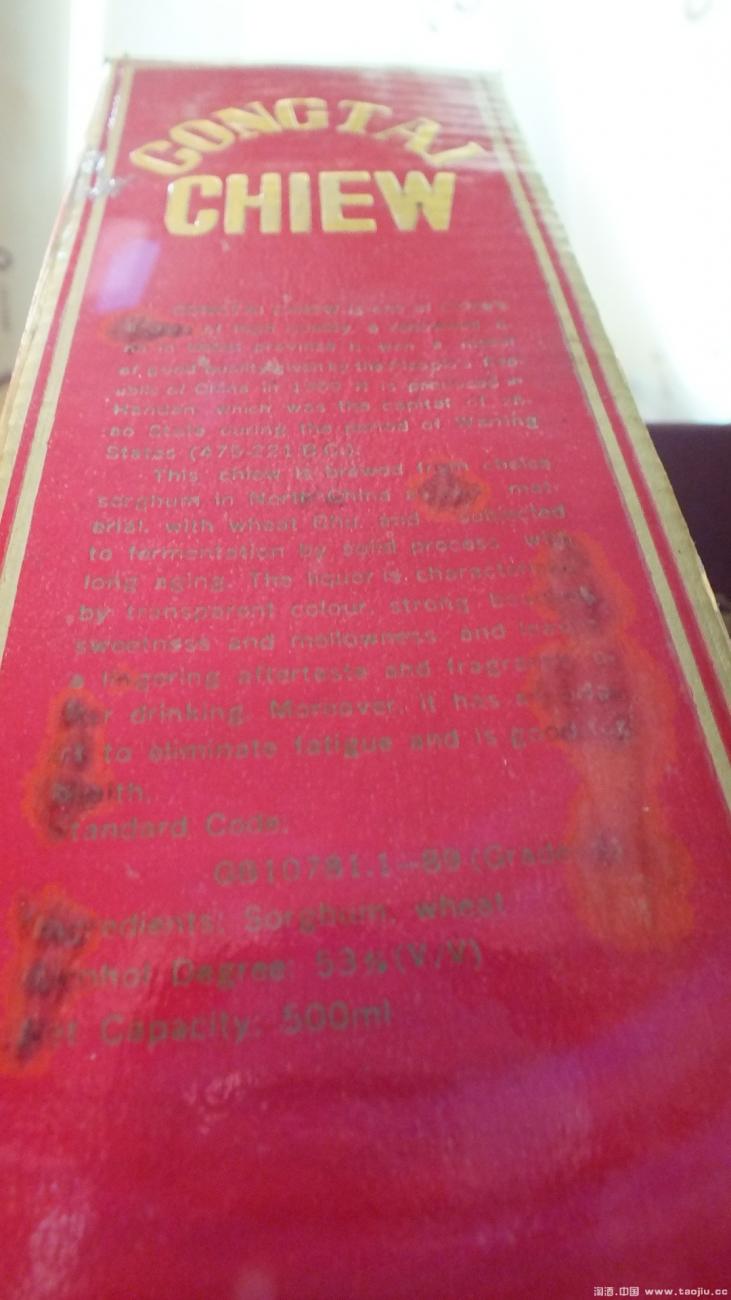 CONGTAI
CHIEW
CONGTAI CHIEW is one of China's
of high quality, a renowned
in Hebei province it won a medal
of good quality given by the People's Rep-
ublic of China in It is produced in
Handan which was the capital of Zh-
ao State during the period of Warring
States (475-221 B.C.).
This chiew is brewed from choice
sorghum in North China mat-
erial, with wheat and subjected
to fermentation by solid process with
long aging. The liquor is characterized
by transparent colour, strong
sweetness and mellowness and
a lingering aftertaste and
drinking. Moreover, it has
to eliminate fatigue and is good for
health.
Standard Code:
GB10781.1—89 (Grade
Ingredients: Sorghum, wheat
Alcohol Degree: 53% (V/V)
Net Capacity: 500ml
淘酒.中国 www.taojiu.cc